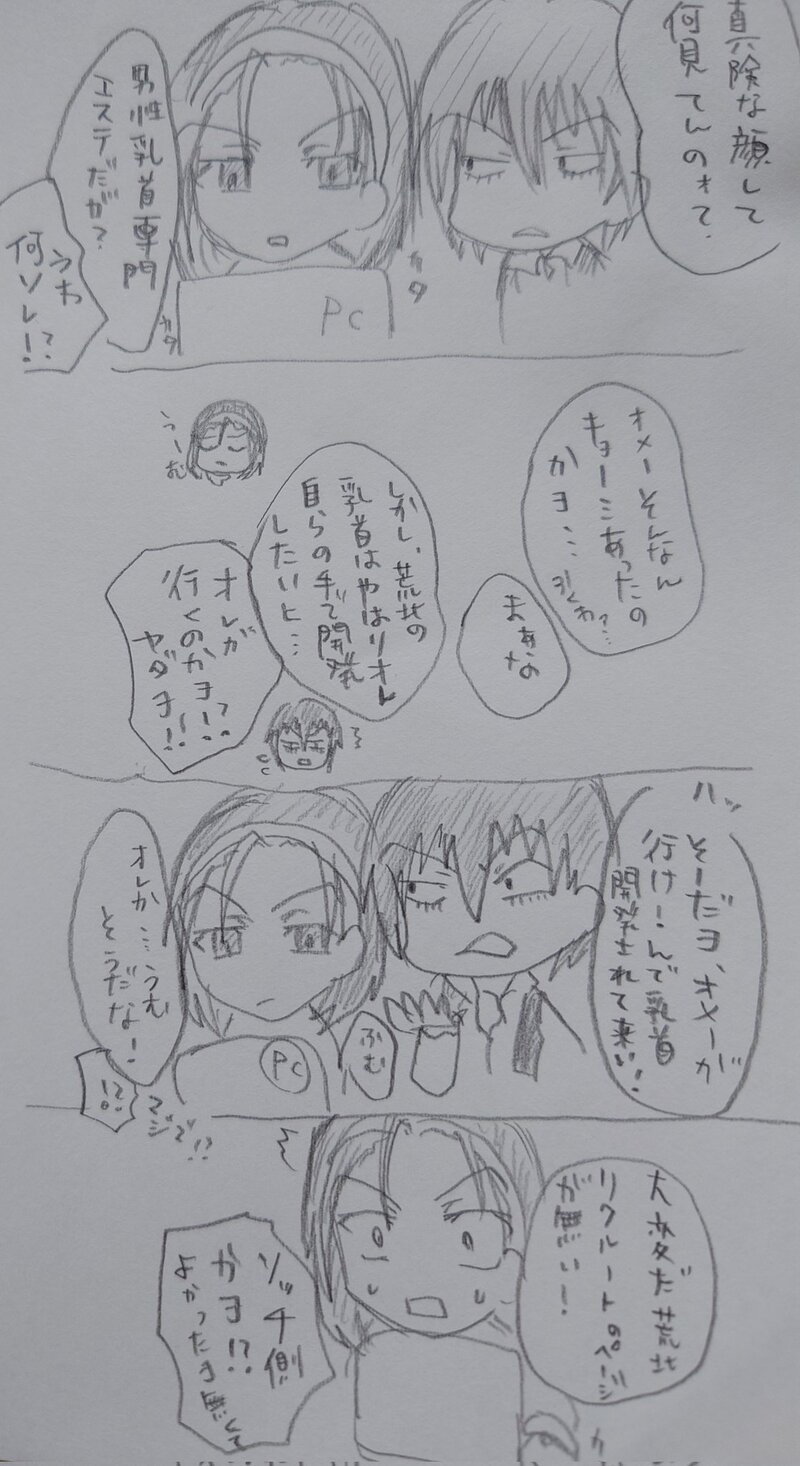 真険な顔して
何見てんのォて.
男性乳首専門
エステだが?
うわ
何ソレ!?
カタ
カタ
PC
オメーそんなん
キョーミあったの
かヨ… 引くわ…
まあな
しかし、荒北の
乳首はやはりオレ
自らの手で開発
したいと…
うーむ
オレが
行くのかヨ!?
ヤダヨ!!
ハッ
そーだヨ、オメーが
行け!んで乳首
開発されて来い!
ふむ
オレか…うむ
そうだな!
PC
!?
マジで!?
大変だ荒北
リクルートのページ
が無い!
ソッチ側
かヨ!?
よかったヨ無くて